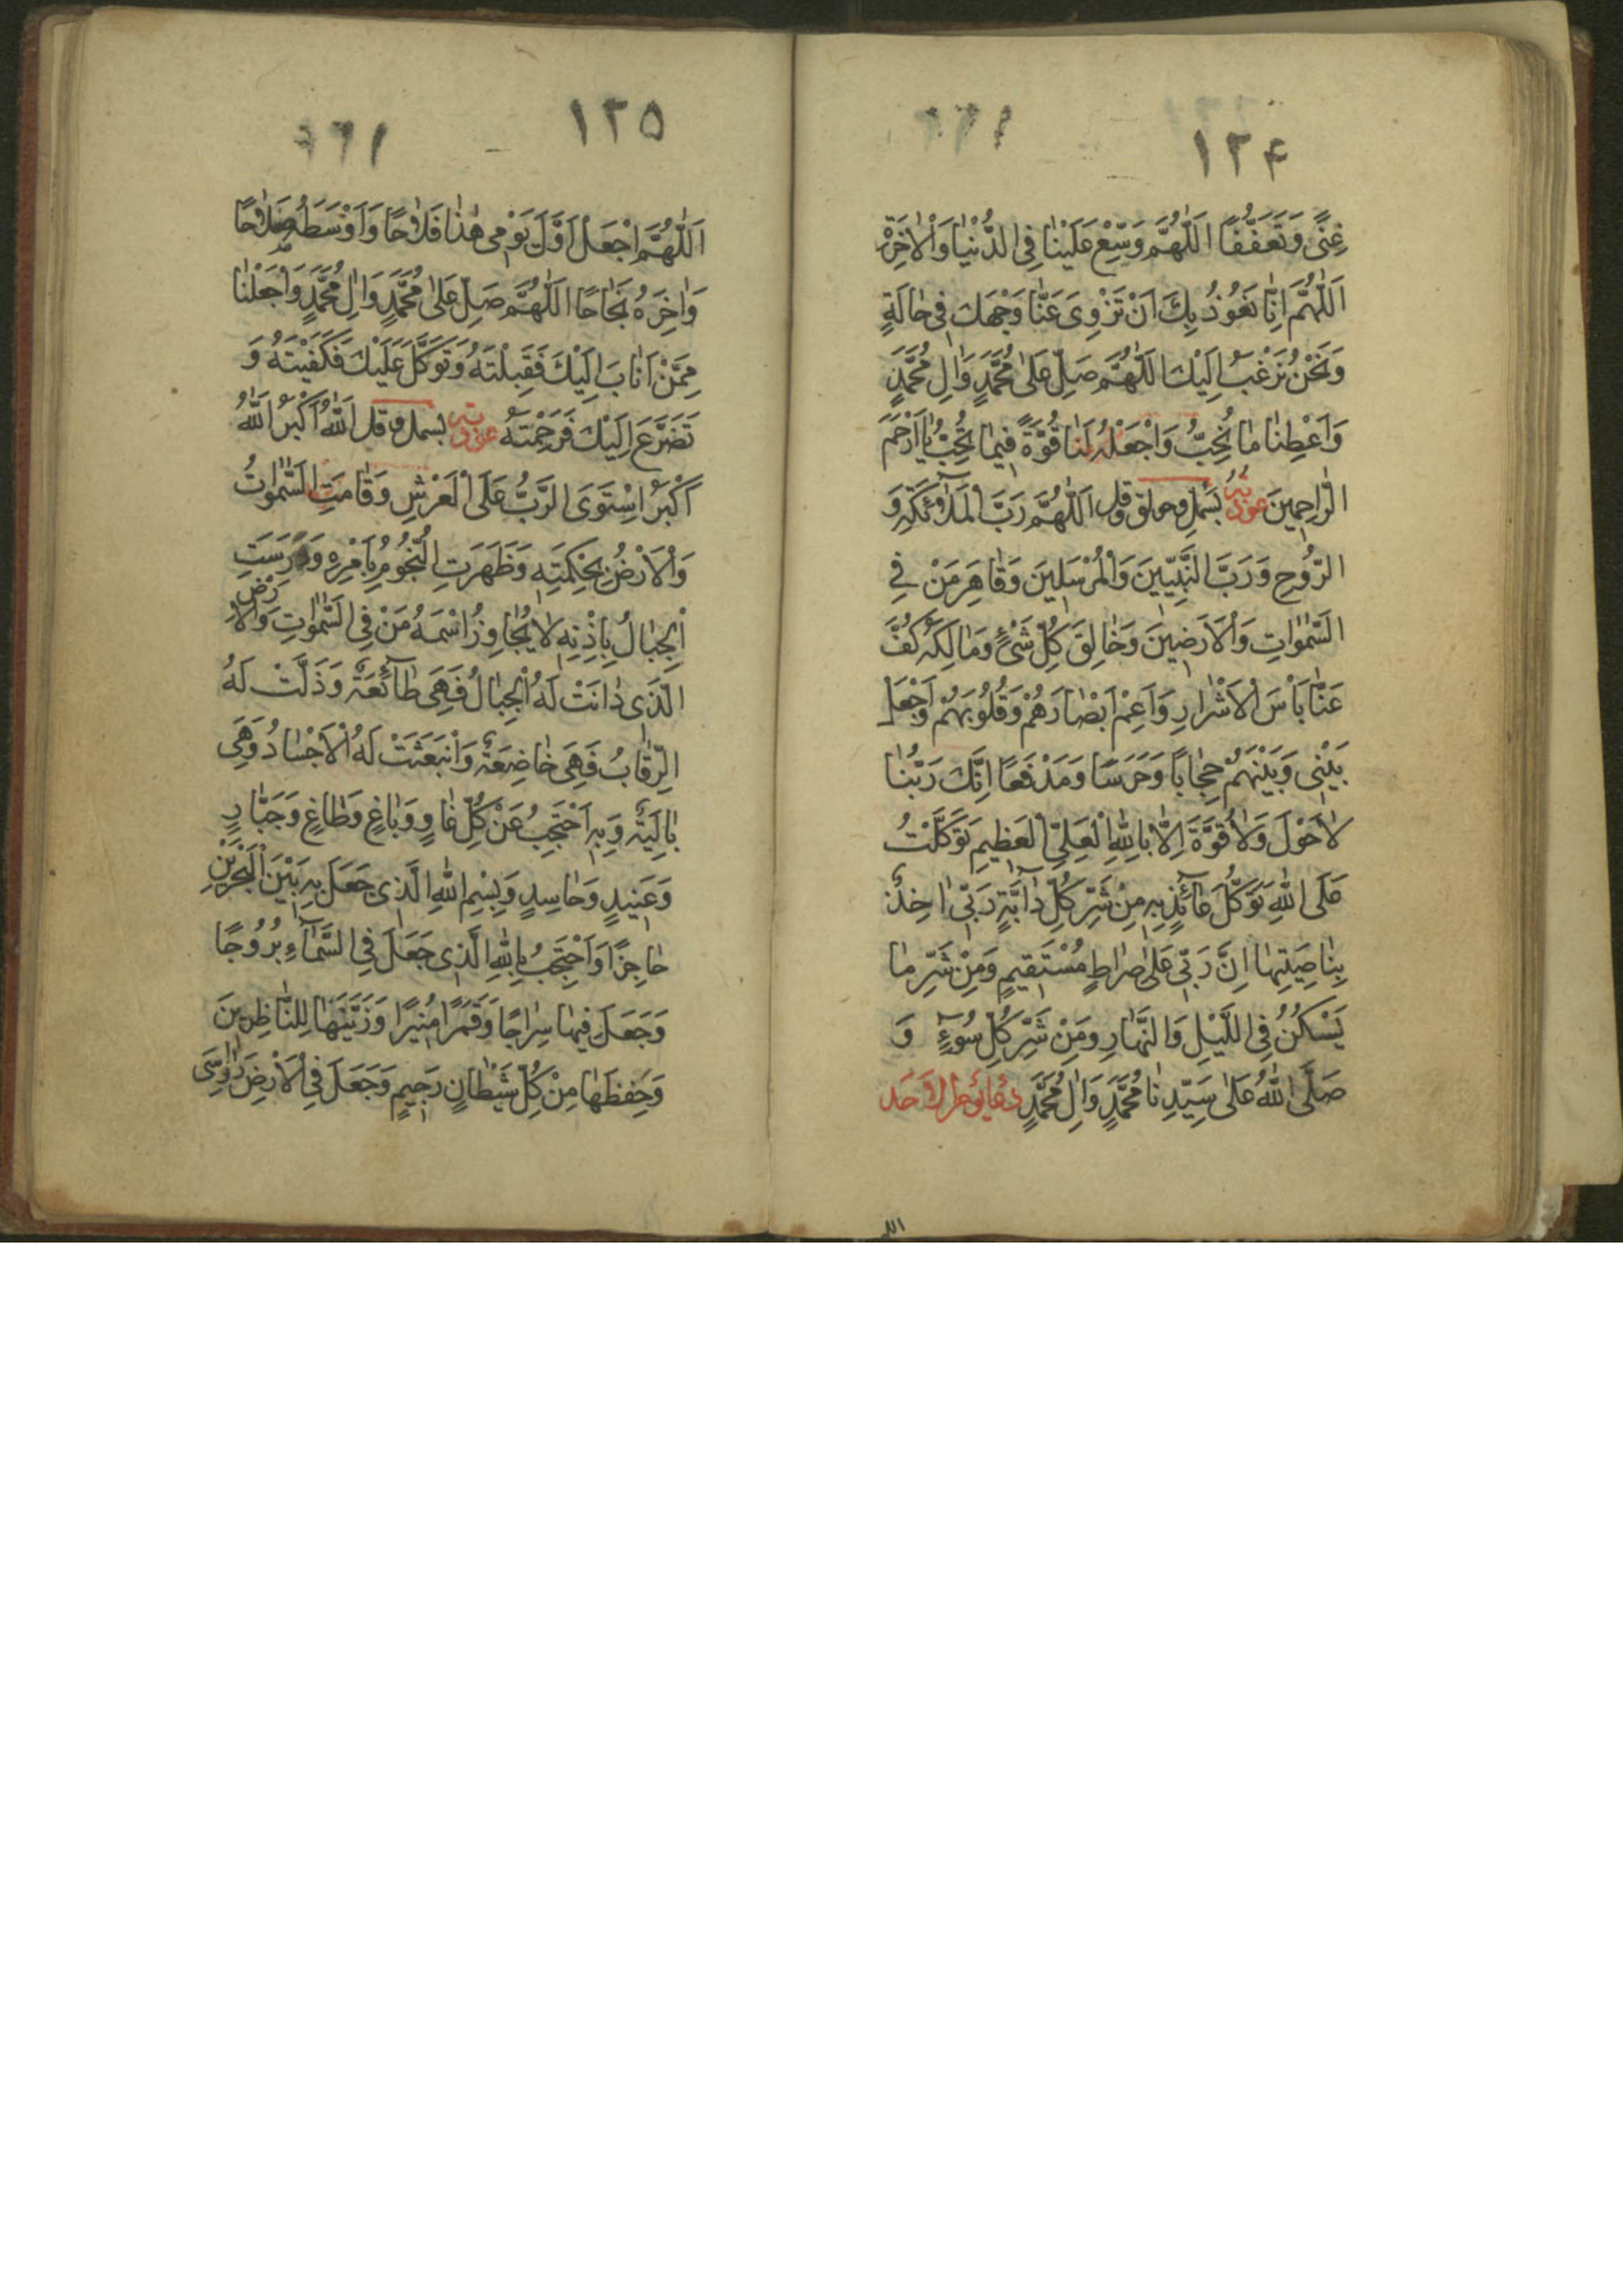 ۱۲۴
غِنًى وَتَعَفُّفًا اَللّٰهُمَّ وَسِّعْ عَلَيْنٰا فِى الدُّنْيٰا وَالْاٰخِرَةِ
اَللّٰهُمَّ اِنّٰا نَعُوذُ بِكَ اَنْ تَزْوِىَ عَنّٰا وَجْهَكَ فِى حٰالَةٍ
وَنَحْنُ نَرْغَبُ اِلَيْكَ اَللّٰهُمَّ صَلِّ عَلىٰ مُحَمَّدٍ وَاٰلِ مُحَمَّدٍ
وَاَعْطِنٰا مٰا تُحِبُّ وَاجْعَلْهُ لَنٰا قُوَّةً فِيمٰا تُحِبُّ يٰا اَرْحَمَ
الرّٰاحِمِينَ عوذتہ بسمل وحولق وقل اَللّٰهُمَّ رَبَّ الْمَلٰٓئِكَةِ وَ
الرُّوحِ وَرَبَّ النَّبِيّينَ وَالْمُرْسَلِينَ وَقٰاهِرَ مَنْ فِى
السَّمٰوٰاتِ وَالْاَرَضِينَ وَخٰالِقَ كُلِّ شَىْءٍ وَمٰالِكَهُ كُفَّ
عَنّٰا بَأْسَ الْاَشْرٰارِ وَاَعْمِ اَبْصٰارَهُمْ وَقُلُوبَهُمْ وَاجْعَلْ
بَيْنِى وَبَيْنَهُمْ حِجٰابًا وَحَرَسًا وَمَدْفَعًا اِنَّكَ رَبُّنٰا
لٰا حَوْلَ وَلٰا قُوَّةَ اِلّٰا بِاللّٰهِ الْعَلِىِّ الْعَظِيمِ تَوَكَّلْتُ
عَلَى اللّٰهِ تَوَكُّلَ عٰٓائِذٍ بِهِ مِنْ شَرِّ كُلِّ دٰٓابَّةٍ رَبِّى اٰخِذٌ
بِنٰاصِيَتِهٰا اِنَّ رَبِّى عَلىٰ صِرٰاطٍ مُسْتَقِيمٍ وَمِنْ شَرِّ مٰا
يَسْكُنُ فِى اللَّيْلِ وَالنَّهٰارِ وَمِنْ شَرِّ كُلِّ سُوٓءٍ وَ
صَلَّى اللّٰهُ عَلىٰ سَيِّدِنٰا مُحَمَّدٍ وَاٰلِ مُحَمَّدٍ دعاء يوم الاحد
۱۲۵
اَللّٰهُمَّ اجْعَلْ اَوَّلَ يَوْمِى هٰذٰا فَلٰاحًا وَاَوْسَطَهُ صَلٰاحًا
وَاٰخِرَهُ نَجٰاحًا اَللّٰهُمَّ صَلِّ عَلىٰ مُحَمَّدٍ وَاٰلِ مُحَمَّدٍ وَاجْعَلْنٰا
مِمَّنْ اَنٰابَ اِلَيْكَ فَقَبِلْتَهُ وَتَوَكَّلَ عَلَيْكَ فَكَفَيْتَهُ وَ
تَضَرَّعَ اِلَيْكَ فَرَحِمْتَهُ عوذتہ بسمل وقل اَللّٰهُ اَكْبَرُ اَللّٰهُ
اَكْبَرُ اسْتَوَى الرَّبُّ عَلَى الْعَرْشِ وَقٰامَتِ السَّمٰوٰاتُ
وَالْاَرْضُ بِحِكْمَتِهِ وَظَهَرَتِ النُّجُومُ بِاَمْرِهِ وَرَسَتِ
الْجِبٰالُ بِاِذْنِهِ لٰا يُجٰاوِزُ اسْمَهُ مَنْ فِى السَّمٰوٰاتِ وَالْاَرْضِ
الَّذِى دٰانَتْ لَهُ الْجِبٰالُ فَهِىَ طٰٓائِعَةٌ وَذَلَّتْ لَهُ
الرِّقٰابُ فَهِىَ خٰاضِعَةٌ وَانْبَعَثَتْ لَهُ الْاَجْسٰادُ وَهِىَ
بٰالِيَةٌ وَبِهِ اَحْتَجِبُ عَنْ كُلِّ غٰاوٍ وَبٰاغٍ وَطٰاغٍ وَجَبّٰارٍ
وَعَنِيدٍ وَحٰاسِدٍ وَبِسْمِ اللّٰهِ الَّذِى جَعَلَ بِهِ بَيْنَ الْبَحْرَيْنِ
حٰاجِزًا وَاَحْتَجِبُ بِاللّٰهِ الَّذِى جَعَلَ فِى السَّمٰٓاءِ بُرُوجًا
وَجَعَلَ فِيهٰا سِرٰاجًا وَقَمَرًا مُنِيرًا وَزَيَّنَهٰا لِلنّٰاظِرِينَ
وَحَفِظَهٰا مِنْ كُلِّ شَيْطٰانٍ رَجِيمٍ وَجَعَلَ فِى الْاَرْضِ رَوٰاسِىَ